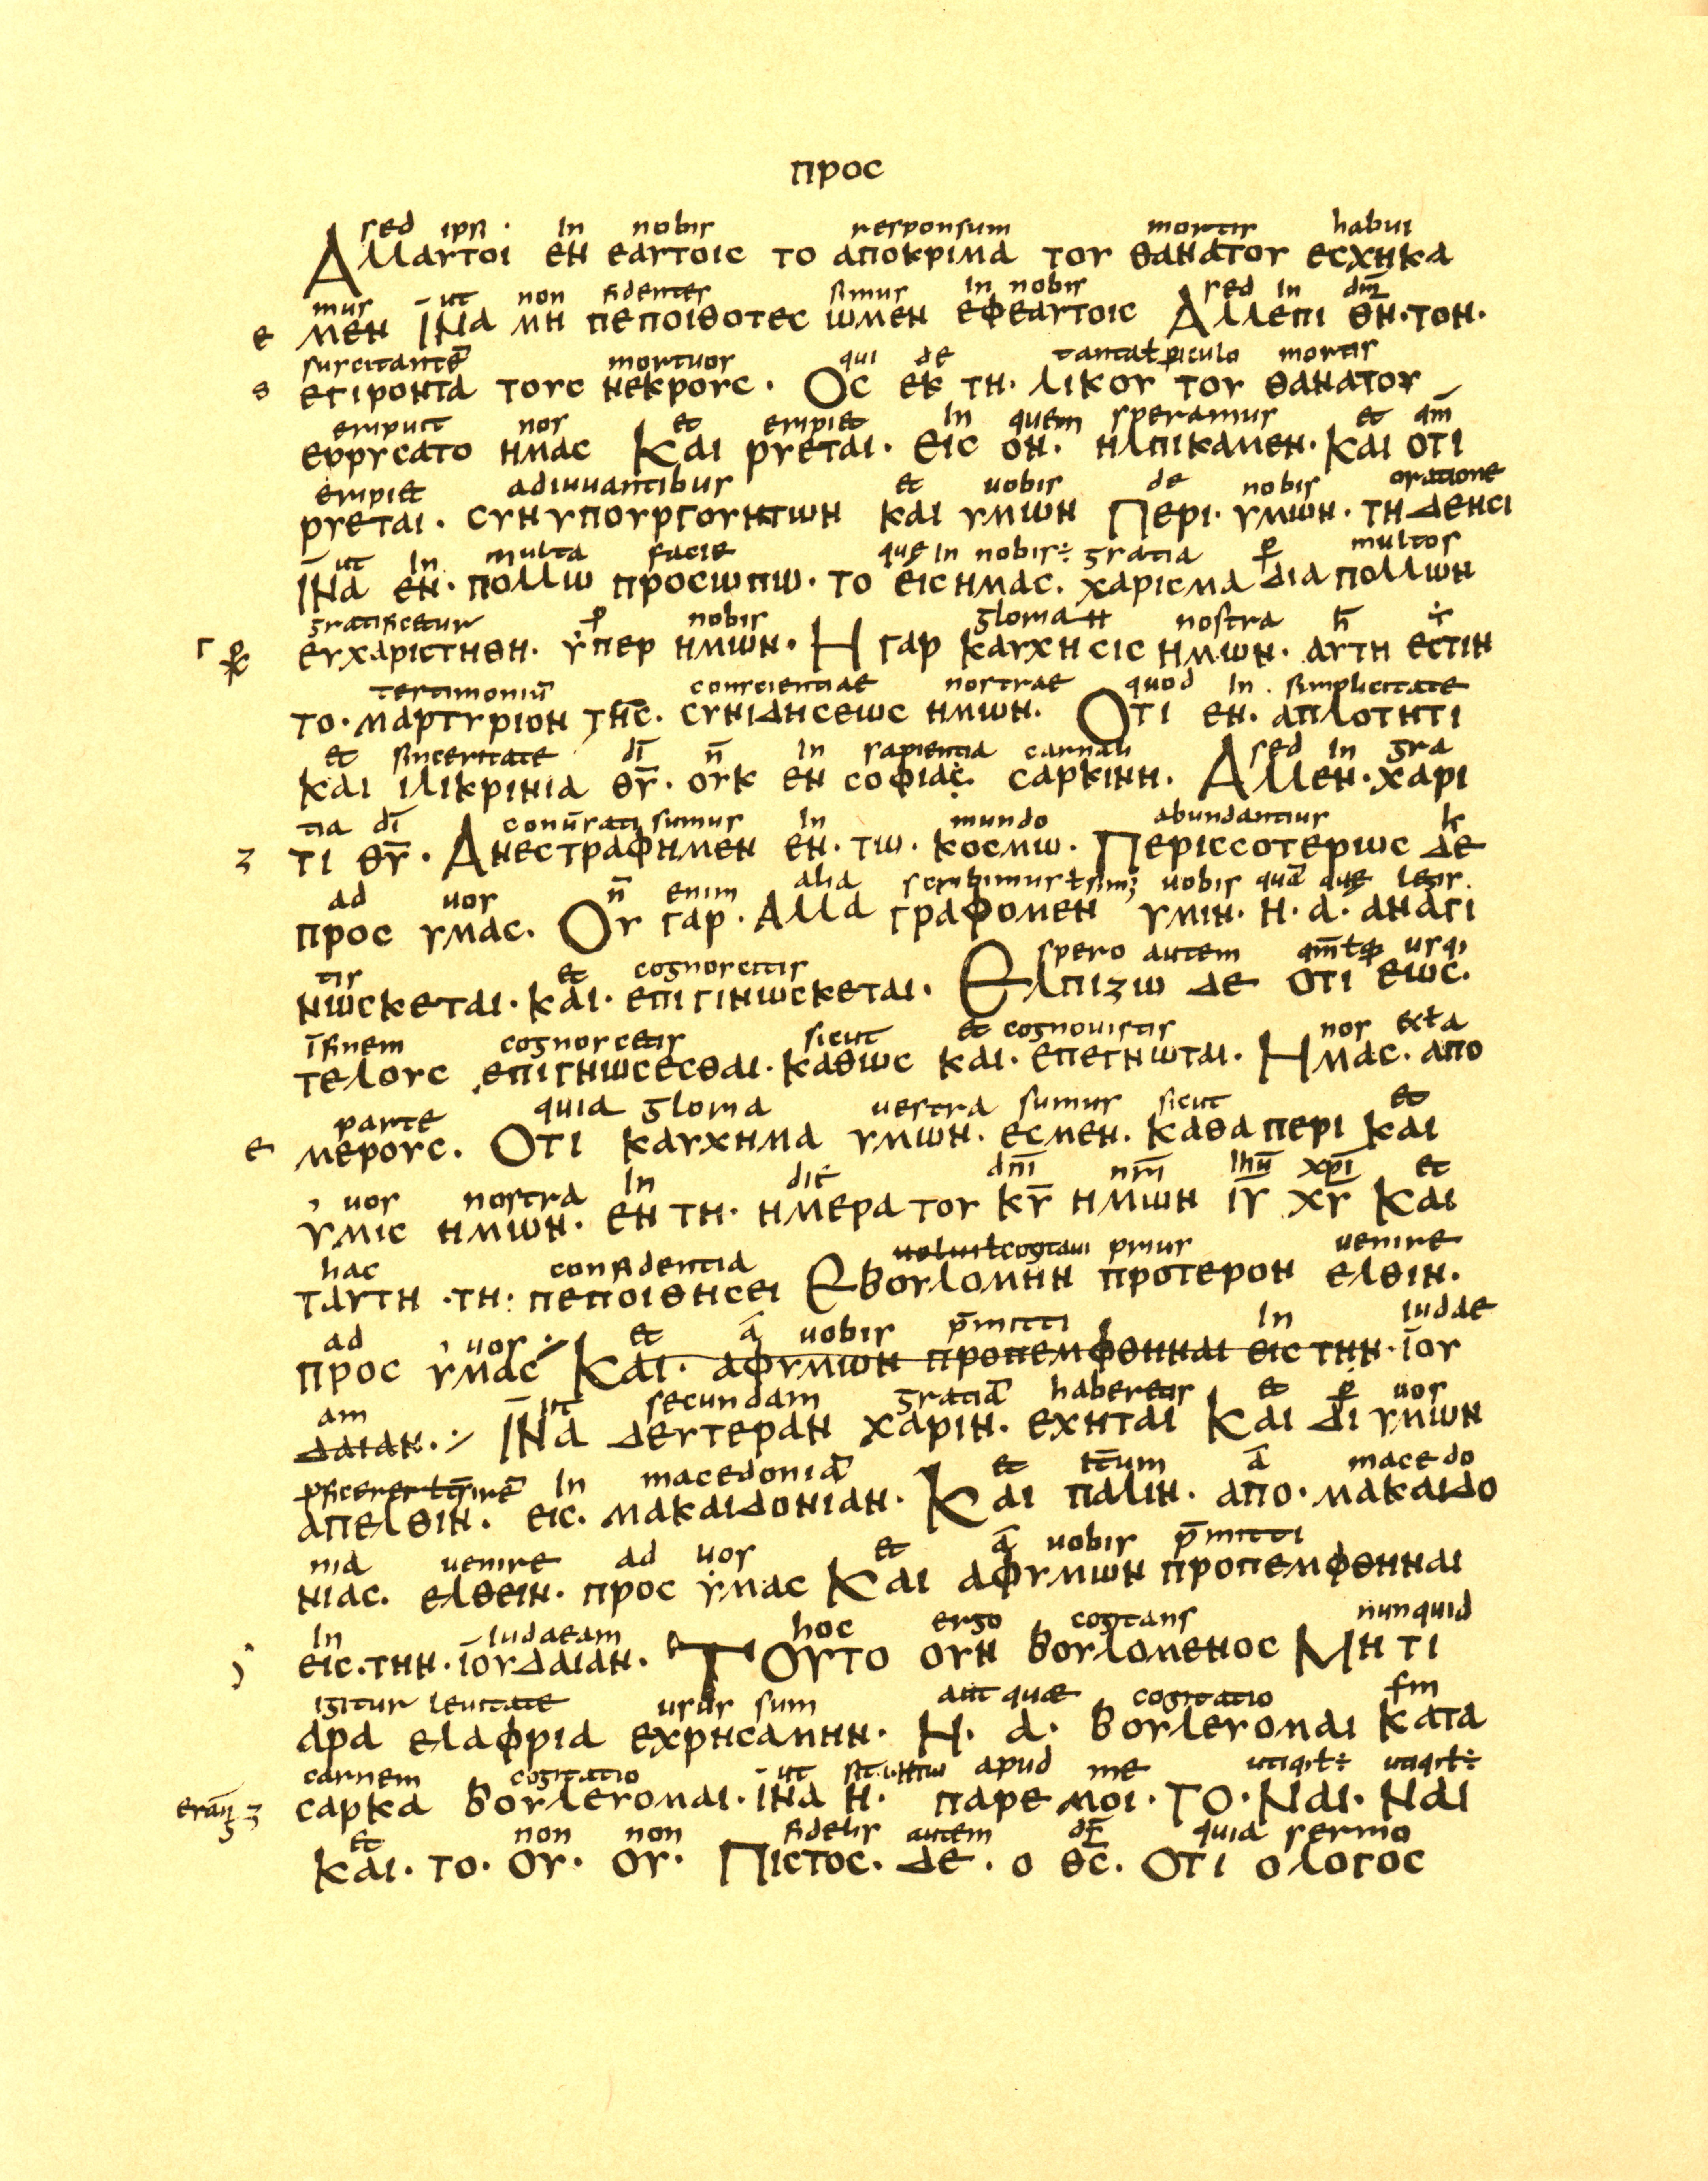 προς
sed ipsi · In nobis responsum mortis habui
Αλλαυτοι εν εαυτοις το αποκριμα του θανατου εσχηκα
mus ut non fidentes simus In nobis sed In dm̄
ε μεν ῑνα μη πεποιθοτες ωμεν εφεαυτοις Αλλεπι θ̄ν̄·τον·
suscitantē mortuos qui de piculo mortis
εγιροντα τους νεκρους · Ος εκ τη· λικου του θανατου
eripuit nos et eripiet In quem speramus et qm̄
ερρυσατο ημας Και ρυεται· Εις ον· ηλπικαμεν· Και οτι
eripiet adiuuantibus et uobis de nobis oratione
ρυεται· συνυπουργουντων και υμων Περι· υμων· τη δεησι
ut In multa facie que In nobis÷ gratia p̄ multos
ῑνα εν· πολλω προσωπω· το εις ημας· χαρισμα δια πολλων
gratificetur p̄ nobis gloria nostra h̄
ευχαριστηθη· υπερ ημων· Η γαρ καυχησις ημων· αυτη εστιν
testimoniū conscientiae nostrae quod In simplicitate
το· μαρτυριον της· συνιδησεως ημων· Οτι εν· απλοτητι
et sinceritate dī n̄ In sapientia carnali sed In gra
και ιλικρινια θ̄ῡ· ουκ εν σοφιας· σαρκινη· Αλλεν·χαρι
tia dī conūrati sumus In mundo abundantius
ζ τι θ̄ῡ· Ανεστραφημεν εν· τω· κοσμω· Περισσοτερως δε
ad uos n̄ enim alia scribimus uobis quā que legis·
προς υμας· Ου γαρ· Αλλα γραφομεν υμιν· η· α· αναγι
tis et cognoscitis spero autem usq,
νωσκεται· και· επιγινωσκεται· Ελπιζω δε οτι εως·
īfinem cognoscetis sicut et cognouistis nos
τελους επιγνωσεσθαι· καθως και· επεγνωται· Ημας· απο
parte quia gloria uestra sumus sicut et
ε μερους· Οτι καυχημα υμων· εσμεν· Καθαπερι Και
uos nostra In die dnī nrī ihū xpī et
υμις ημων· εν τη· ημερα του κ̄ῡ ημων ῑῡ χ̄ῡ Και
hac confidentia prius uenire
ταυτη ·τη· πεποιθησει Εβουλομην προτερον ελθιν·
ad uos et ā uobis p̄mitti In iudae
προς υμας Και· αφυμων προπεμφθηναι εις την· ιου
am ut secundam gratiā haberetis et p̄ uos
δαιαν· ῑνα δευτεραν χαριν· εχηται Και δι υμων
In macedoniā et ā macedo
απελθιν· εις· μακαιδονιαν· Και παλιν· απο· μακαιδο
nia uenire ad uos et ā uobis p̄mitti
νιας· ελθειν· προς υμας Και αφυμων προπεμφθηναι
In Iudaeam hoc ergo cogitans nunquid
εις·την·ιουδαιαν· Τουτο ουν βουλομενος Μη τι
igitur leuitate usus sum aut quae cogitatio
αρα ελαφρια εχρησαμην· Η· α· βουλευομαι κατα
carnem cogitatio ut apud me
σαρκα βουλευομαι· ῑνα η· παρε μοι· ΤΟ·Ναι· Ναι
et non non fidelis autem dς̄ quia sermo
Και· το· ου· ου· Πιστος· δε· ο θ̄ς̄· Οτι ο λογος